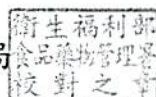 局
衛生福利部
食品藥物管理署
校對之章